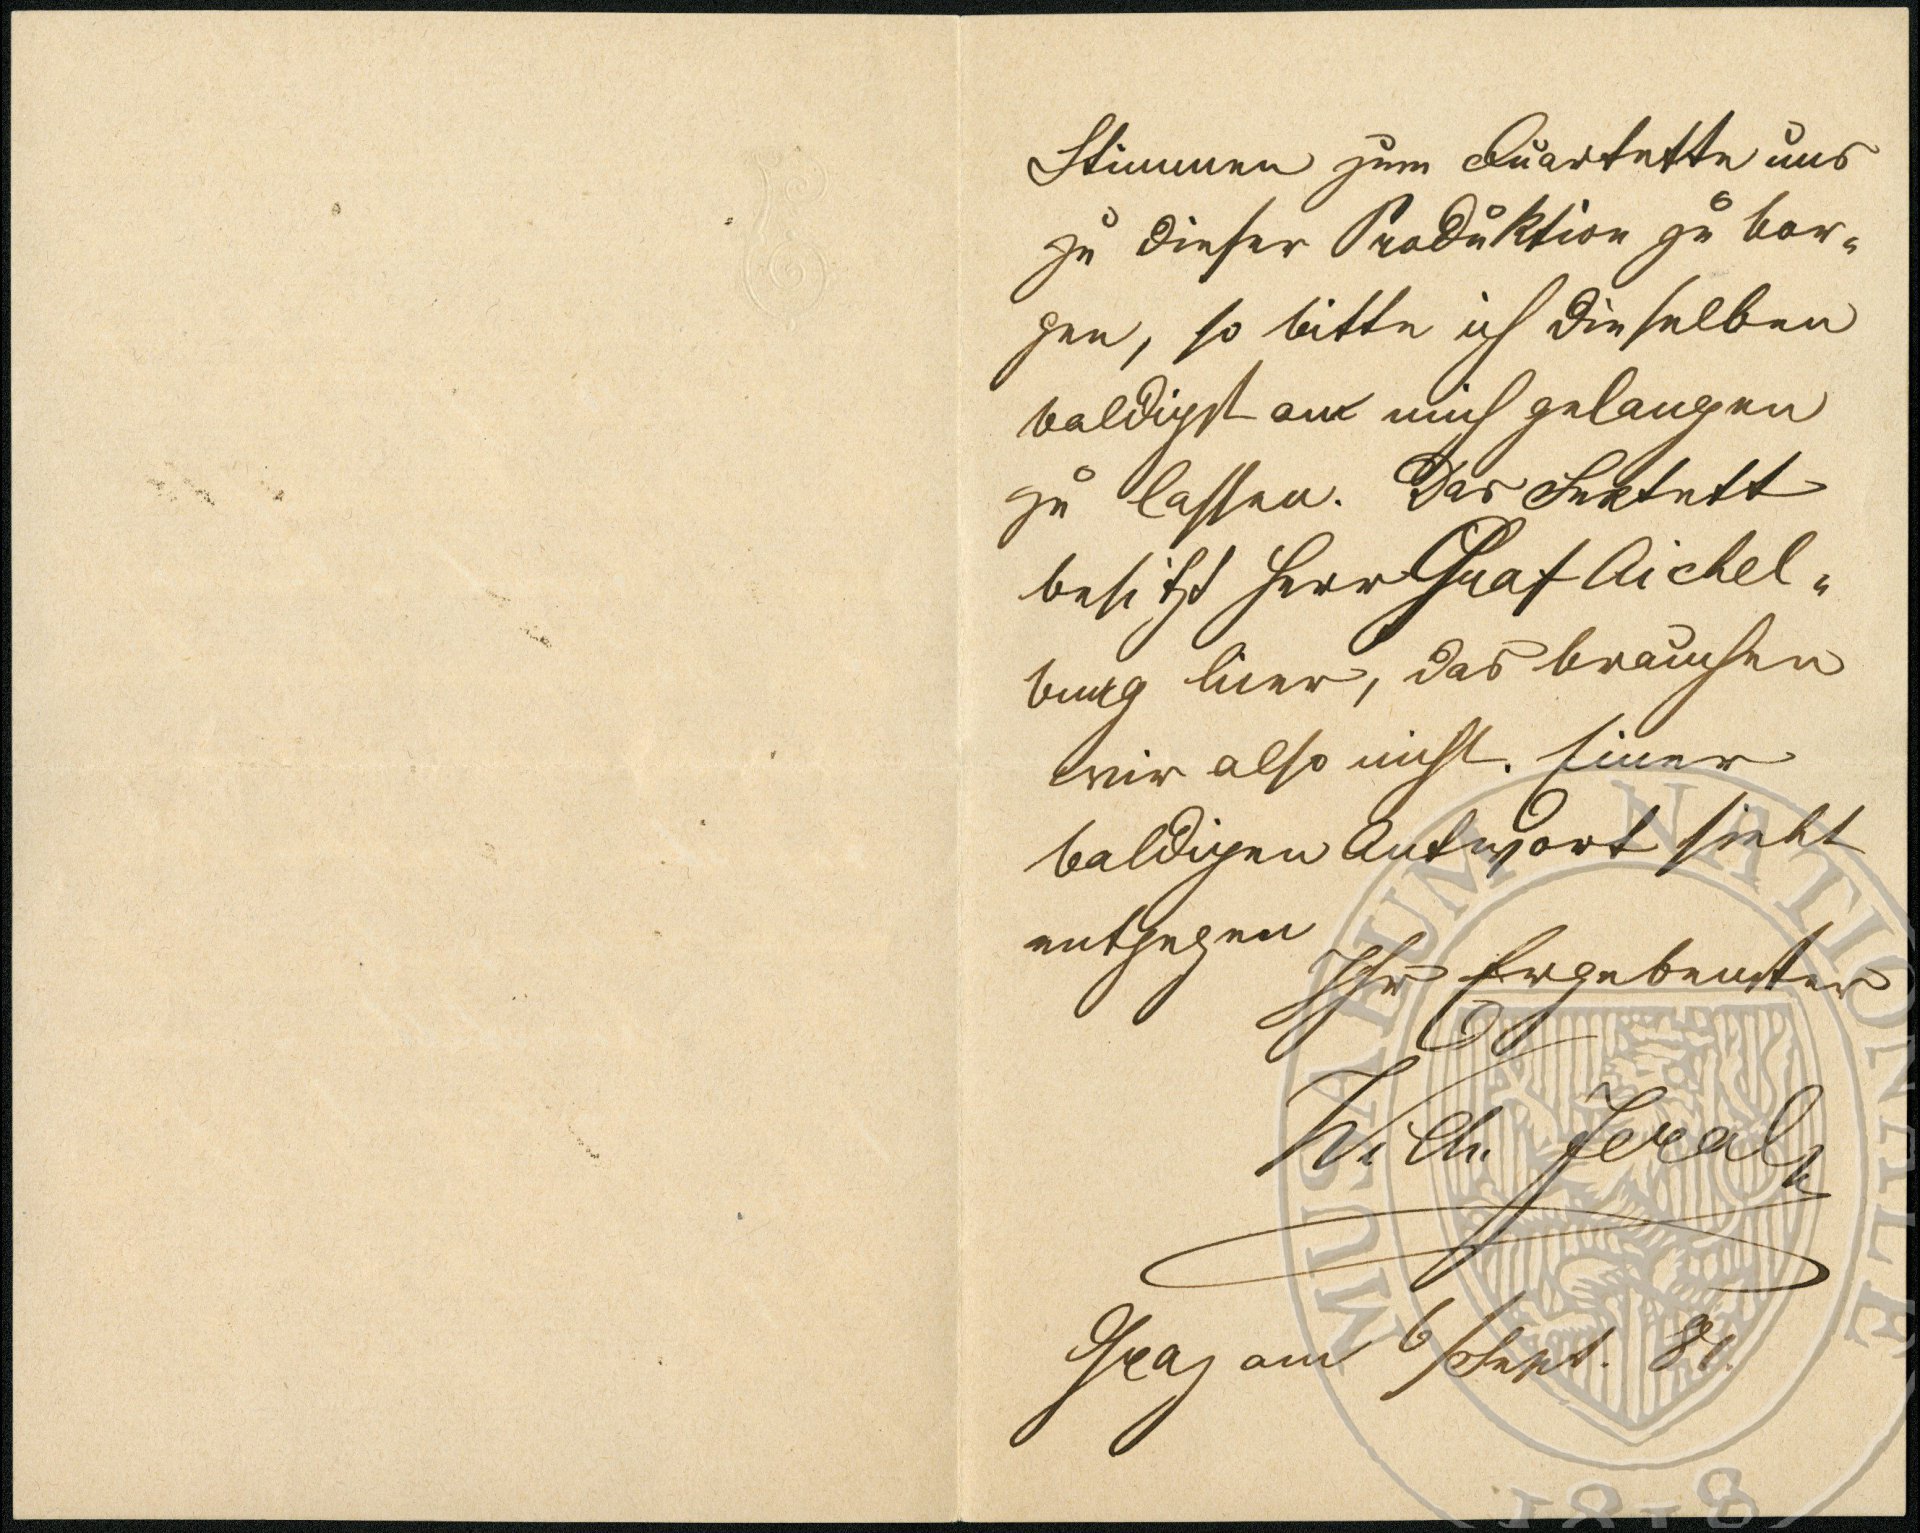 Stimmen zum Quartette uns
zu dieser Produktion zu bor-
gen, so bitte ich dieselben
baldigst an mich gelangen
zu lassen. Das Sextett
besitzt Herr Graf Aichel-
burg hier, das brauchen
wir also nicht. Einer
baldigen Antwort sieht
entgegen
Ihr Ergebenster
Wilh. Jeral
Graz am 6/Sept. 81.
MUSAEUM NATIONALE
1818